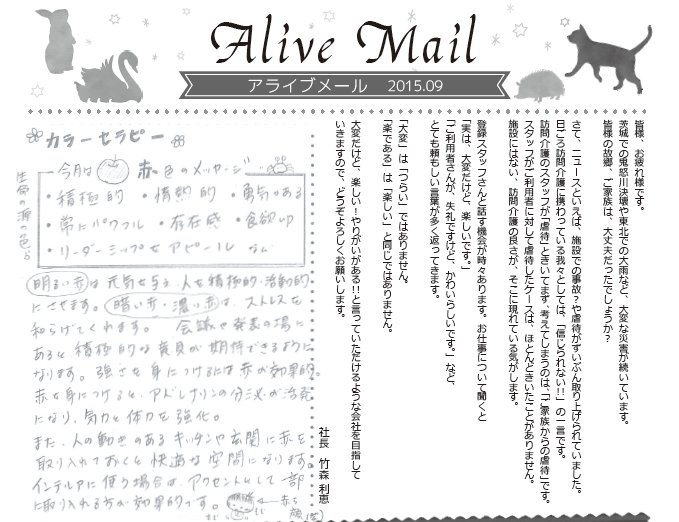 Alive Mail
アライブメール 2015.09
皆様、お疲れ様です。
茨城での鬼怒川決壊や東北での大雨など、大変な災害が続いています。
皆様の故郷、ご家族は、大丈夫だったでしょうか?
さて、ニュースといえば、施設での事故?や虐待がずいぶん取り上げられていました。
日ごろ訪問介護に携わっている我々としては、「信じられない!!」の一言です。
訪問介護のスタッフが「虐待」ときいてまず、考えてしまうのは、「ご家族からの虐待」です。
スタッフがご利用者に対して虐待したケースは、ほとんどきいたことがありません。
施設にはない、訪問介護の良さが、そこに現れている気がします。
登録スタッフさんと話す機会が時々あります。お仕事について聞くと
「実は、大変だけど、楽しいです。」
「ご利用者さんが、失礼ですけど、かわいらしいです。」など
とても頼もしい言葉が多く返ってきます。
「大変」は「つらい」ではありません。
「楽である」は「楽しい」と同じではありません。
大変だけど、楽しい!やりがいがある!!と言っていただけるような会社を目指して
いきますので、どうぞよろしくお願いします。
社長 竹森 利恵
カラーセラピー
今月は 赤色のメッセージ
・積極的 ・情熱的 ・勇気のある
・常にパワフル ・存在感 ・食欲UP
・リーダーシップをアピール など
生命の源の色
明るい赤は元気を与え、人を積極的・活動的
にさせます。暗い赤・濃い赤は、ストレスを
和らげてくれます。 会議や発表の場に
あると積極的な意見が期待できるように
なります。強さを身につけるには赤が効果的。
赤を身につけると、アドレナリンの分泌が活発
になり、気力と体力を強化。
また、人の動きのあるキッチンや玄関に赤を
取り入れておくと快適な空間になります。
インテリアに使う場合は、アクセントとして一部
に取り入れる方が効果的です。